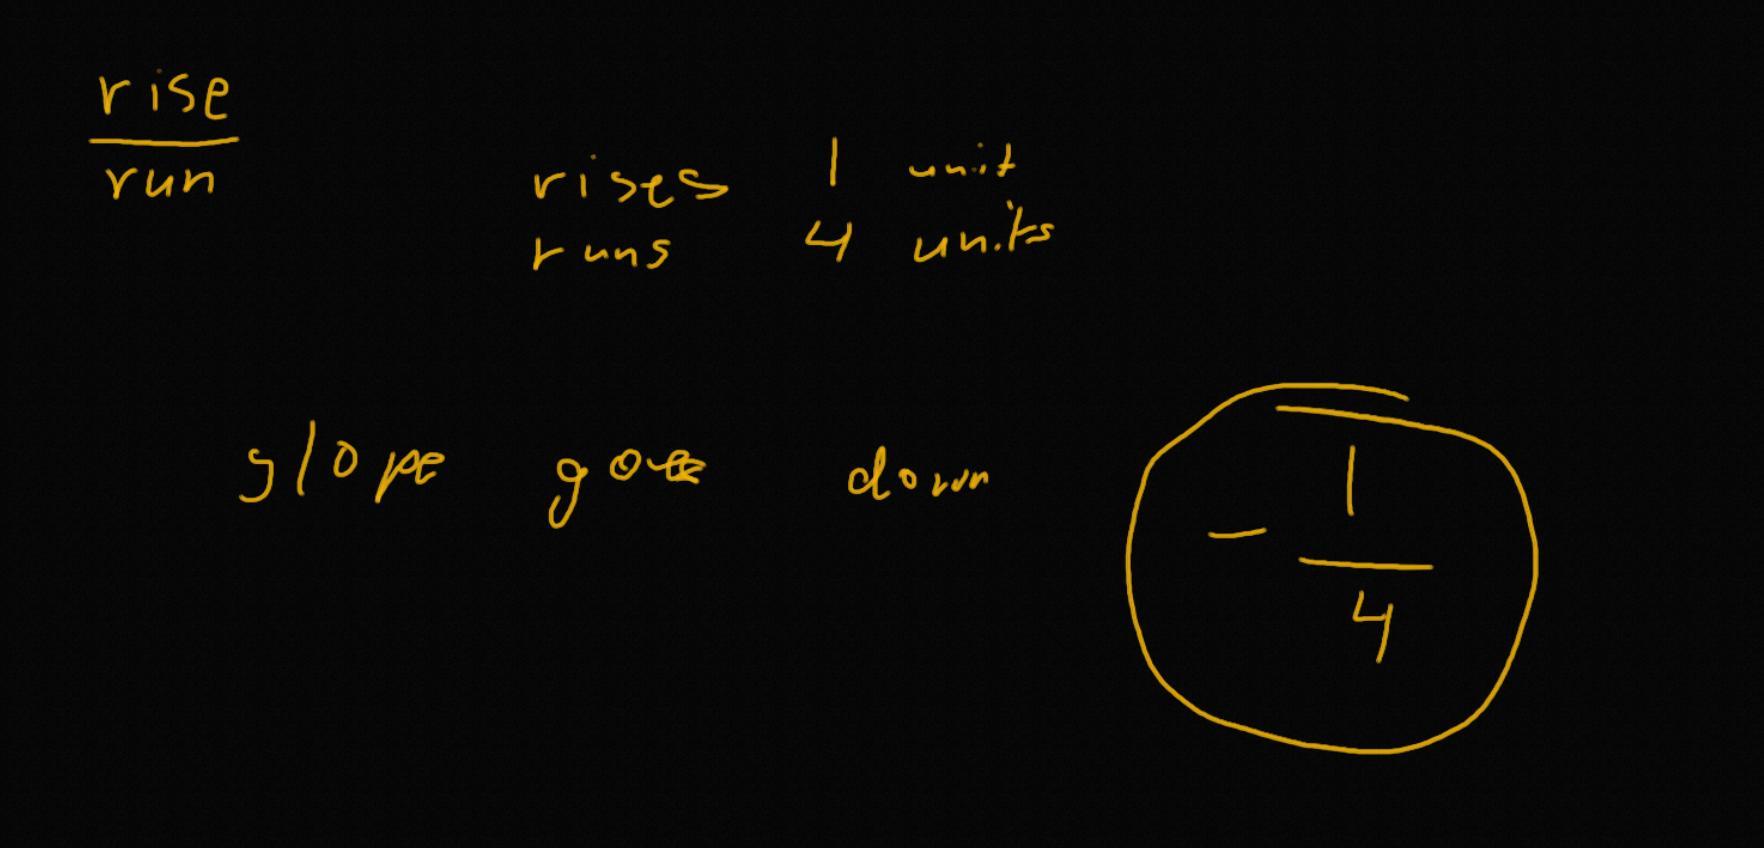 rise
run
rises 1 unit
runs 4 units
slope goes down
- 1
4